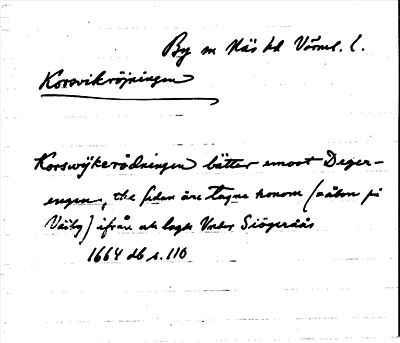 By sn Näs hd Värml. l.
Korsvikröjningen
Korswÿkerödningen bätter emoot Deger-
engen, the sedan äre tagne honom (= åbon på
Väiby) ifrån och lagde Under Siögeråås
1664 db s. 110